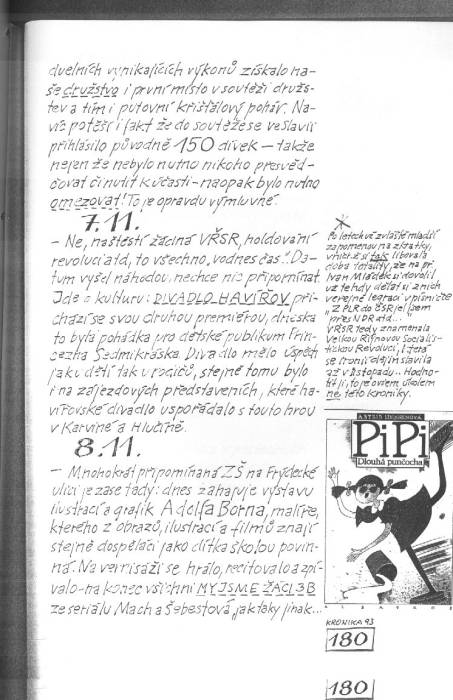 duelních vynikajících výkonů získalo na-
še družstvo i první místo v soutěži družs-
tev a tím i putovní křišťálový pohár. Na-
víc potěší i fakt že do soutěže se ve Slavii
přihlásilo původně 150 dívek – takže
nejen že nebylo nutno nikoho presvěd-
čovat či nutit k účasti – naopak bylo nutno
omezovat! To je opravdu výmluvné.
7.11.
– Ne, naštěstí žádná VŘSR, holdování
revoluci atd, to všechno, "vodnes čas". Da-
tum vyšel náhodou, nechce nic připomínat.
Jde o kulturu: DIVADLO HAVÍŘOV při-
chází se svou druhou premiérou, dneska
to byla pohádka pro dětské publikum Prin-
cezna Sedmikráska. Divadlo mělo úspěch
jak u dětí tak u rodičů, stejně tomu bylo
i na zájezdových představeních, které ha-
vířovské divadlo uspořádalo s touto hrou
v Karviné a Hlučíně.
8.11.
– Mnohokrát připomínaná ZŠ na Frýdecké
ulici je zase tady: dnes zahajuje výstavu
ilustrací a grafik Adolfa Borna, malíře,
kterého z obrazů, ilustrací a filmů znají
stejně dospěláci jako dítka školou povin-
ná. Na vernisáži se hrálo, recitovalo a zpí-
valo – na konec všichni MY JSME ŽÁCI 3B
ze seriálu Mach a Šebestová, jak taky jinak...
Po letech už zvláště mladší
zapomenou na zkratky,
v nichž si tak libovala
doba totality, že na př
Ivan Mládek si dovolil
už tehdy dělat si z nich
veřejně legraci v písničce
"Z PLR do ČSR jel jsem
přes NDR atd..."
VŘSR tedy znamenala
Velkou Říjnovou Socialis-
tickou Revoluci, i řeta
se ironií dějin slavila
až v listopadu... Hodno-
tit ji, to je ovšem úkolem
ne této kroniky.
ASTRID LINDGRENOVÁ
PiPi
Dlouhá punčocha
ALBATROS
KRONIKA 93
180
180